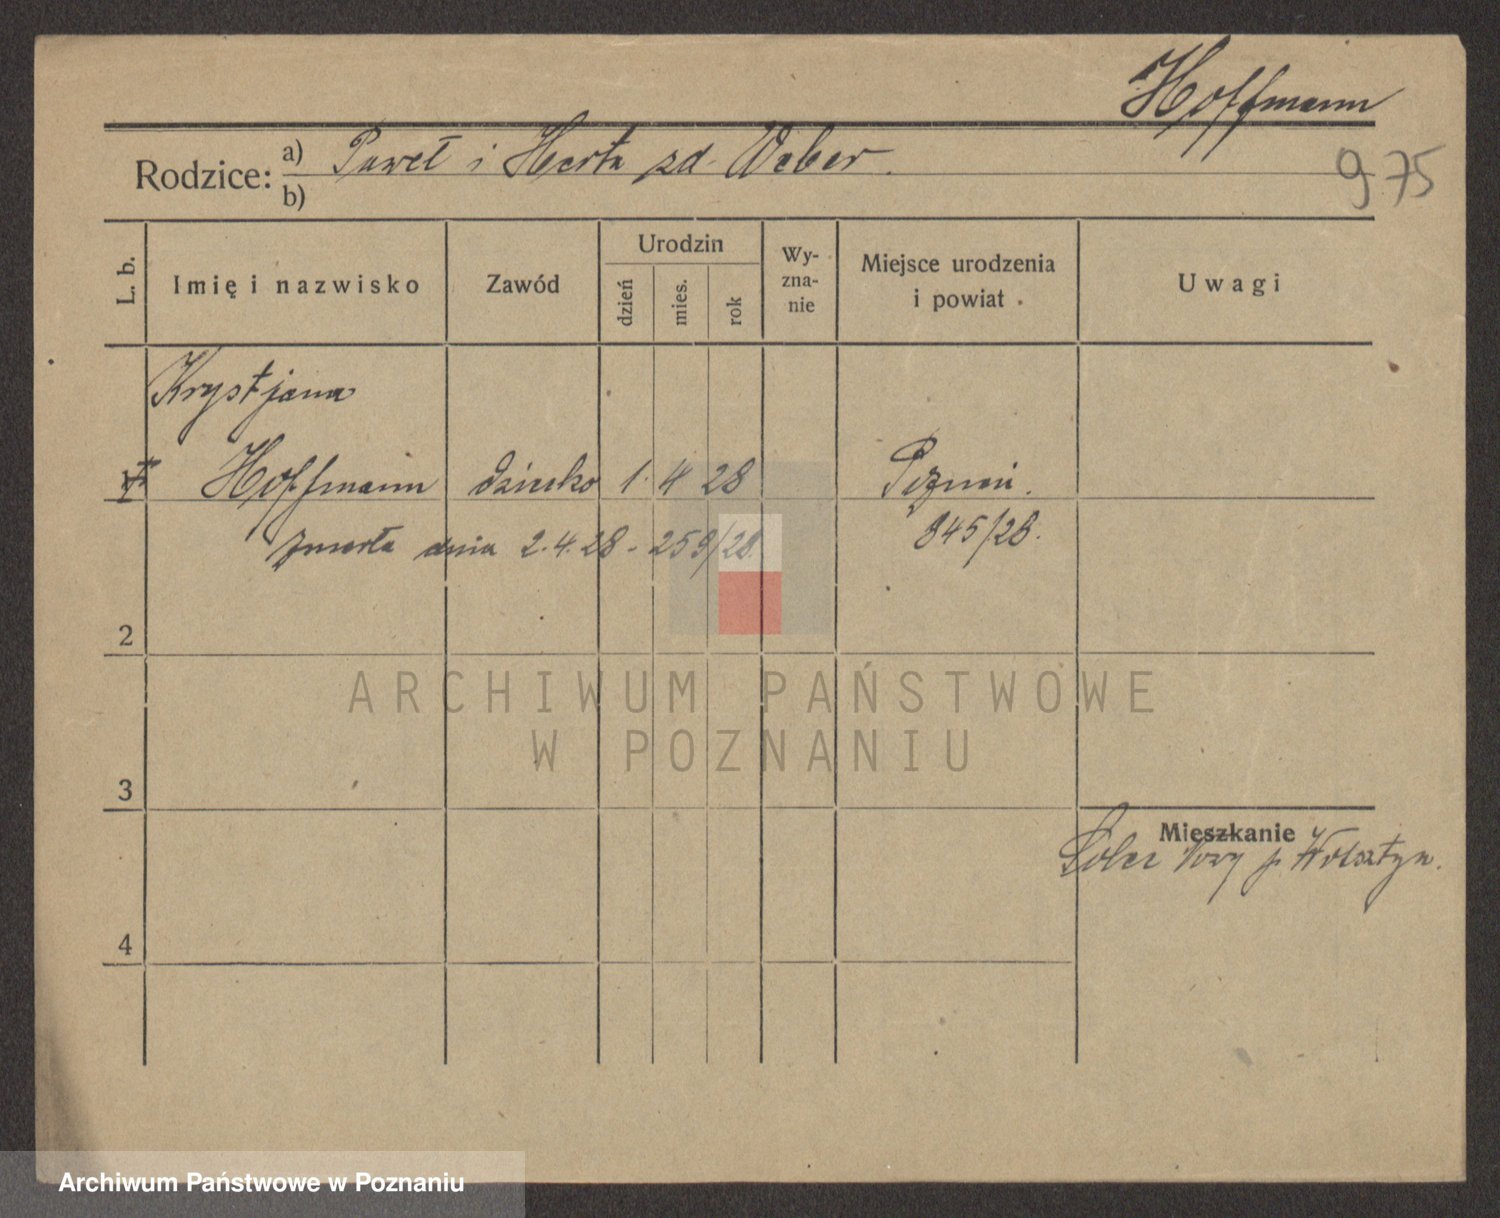 Hoffmann
Rodzice: a) Paweł i Herta zd. Weber.
b)
975
L. b.
Imię i nazwisko
Zawód
Urodzin
dzień
mies.
rok
Wy-
zna-
nie
Miejsce urodzenia
i powiat
Uwagi
Krystjana
1 Hoffmann dziecko 1. 4 28 Poznań.
zmarła dnia 2.4.28 - 259/28 845/28.
2
ARCHIWUM PAŃSTWOWE
W POZNANIU
3
Mieszkanie
p. Wolsztyn.
4
Archiwum Państwowe w Poznaniu